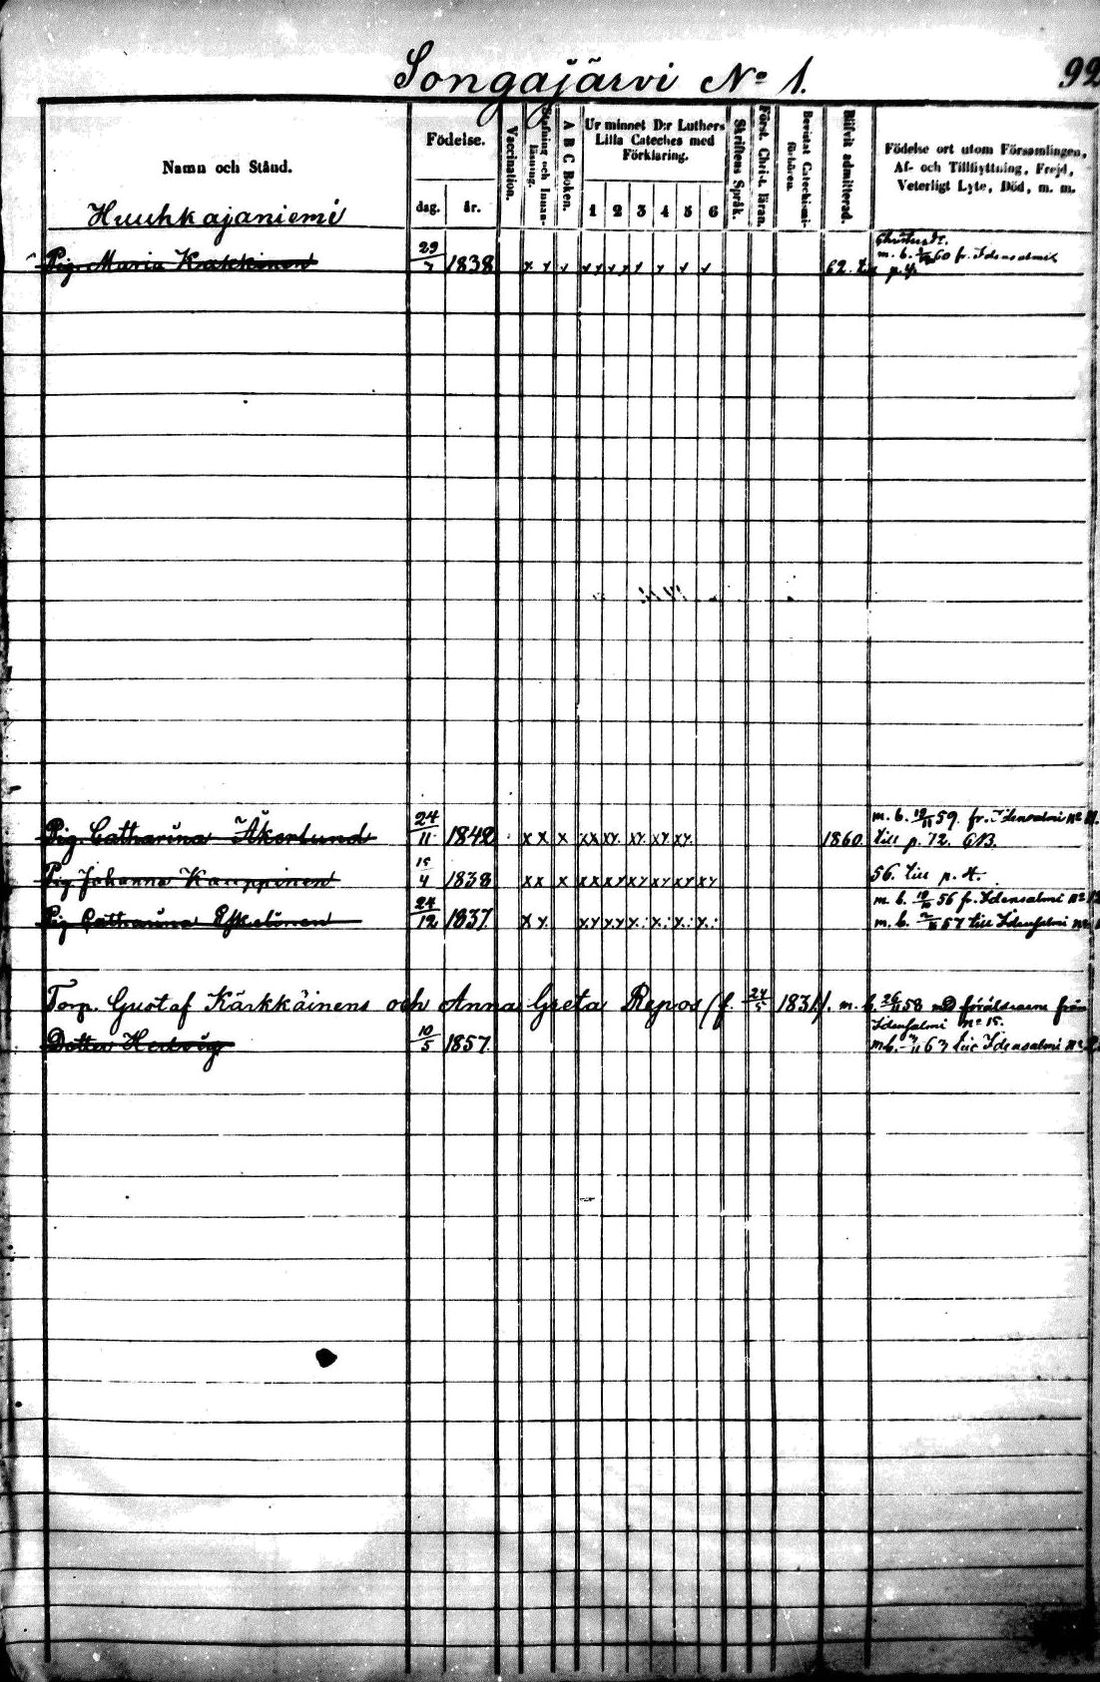 Songajärvi No 1.
92
Namn och Stånd.
Födelse.
dag.
år.
Vaccination.
Stafning och Innanläsning.
A B C Boken.
Ur minnet D:r Luthers
Lilla Cateches med
Förklaring.
1 2 3 4 5 6
Skriftens Språk.
Först. Christ. läran.
Bevistat Catechismiförhören.
Blifvit admitterad.
Födelse ort utom Församlingen,
Af- och Tillflyttning, Frejd,
Veterligt Lyte, Död, m. m.
Huuhkajaniemi
Pig. Maria Kakkinen 29 1838 x x x x x x x x x x x 62. m. b. 60 fr. Idensalmi
Pig. Catharina Åkerlund 24/11 1842 x x x x x x x. x x. x x x x. 1860. m. b. 59. fr. Idensalmi
till p. 72.
Pig Johanna Kauppinen 15/4 1838 x x x x x x x x x x x x x x x 56. till p.
Pig Catharina Eskelinen 24/12 1837. x x. m. b. 56 fr. Idensalmi
m. b. 57 till Idensalmi
Torp. Gustaf Kärkkäinens och Anna Greta Repos (f. 24/5 1831). m. b. 26/11 58 med föräldrarne från
Idensalmi No 15.
Dotter Hedvig 10/5 1857. mb. 63 till Idensalmi